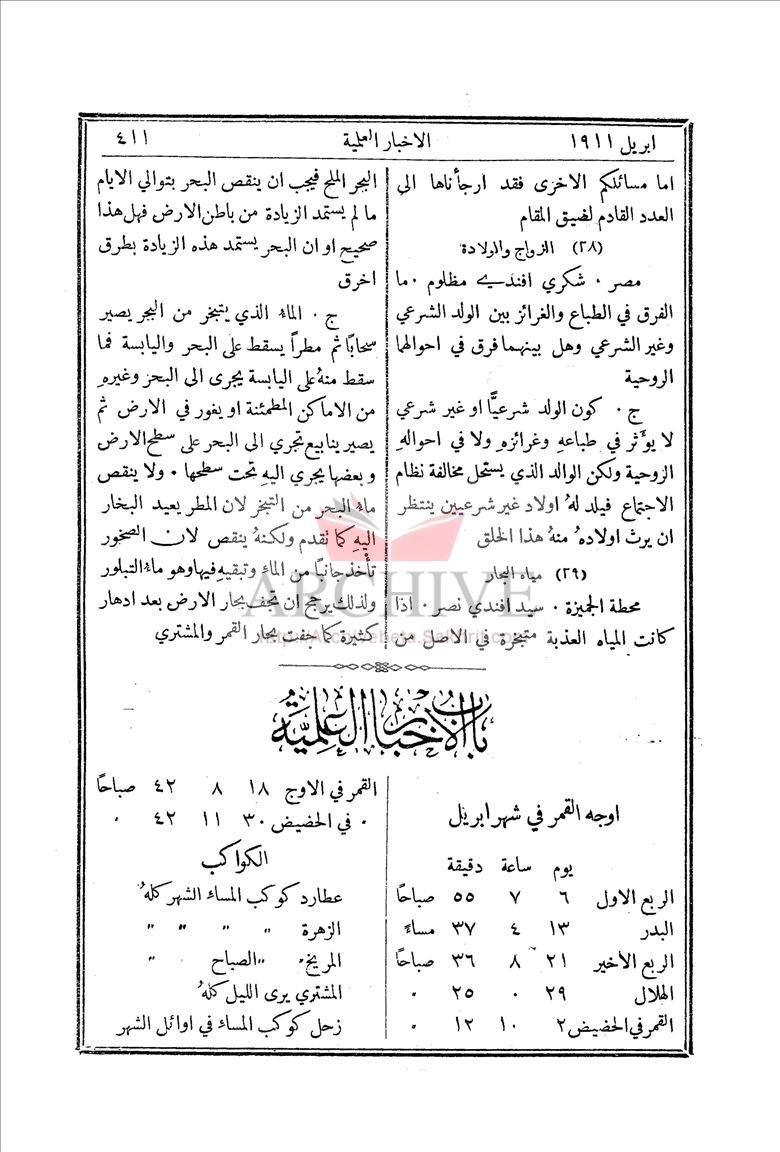 ابريل ١٩١١
الاخبار العلمية
٤١١
اما مسائلكم الاخرى فقد ارجأناها الى
العدد القادم لضيق المقام
(٢٨) الزواج والولادة
مصر ٠ شكري افندي مظلوم ٠ ما
الفرق في الطباع والغرائز بين الولد الشرعي
وغير الشرعي وهل بينهما فرق في احوالهما
الروحية
ج ٠ كون الولد شرعيًّا او غير شرعي
لا يؤثر في طباعهِ وغرائزهِ ولا في احوالهِ
الروحية ولكن الوالد الذي يستحل مخالفة نظام
الاجتماع فيلد لهُ اولاد غير شرعيين ينتظر
ان يرث اولادهُ منهُ هذا الخلق
(٢٩) مياه البحار
محطة الجيزة ٠ سيد افندي نصر ٠ اذا
كانت المياه العذبة متبخرة في الاصل من
البحر الملح فيجب ان ينقص البحر بتوالي الايام
ما لم يستمد الزيادة من باطن الارض فهل هذا
صحيح او ان البحر يستمد هذه الزيادة بطرق
اخرى
ج ٠ الماء الذي يتبخر من البحر يصير
سحابًا ثم مطراً يسقط على البحر واليابسة فما
سقط منهُ على اليابسة يجري الى البحر وغيرهِ
من الاماكن المطمئنة او يغور في الارض ثم
يصير ينابيع تجري الى البحر على سطح الارض
وبعضها يجري اليهِ تحت سطحها ٠ ولا ينقص
ماء البحر من التبخر لان المطر يعيد البخار
اليهِ كما تقدم ولكنهُ ينقص لان الصخور
تأخذ جانبًا من الماء وتبقيهِ فيها وهو ماء التبلور
ولذلك يرجح ان تجف بحار الارض بعد ادهار
كثيرة كما جفت بحار القمر والمشتري
ARCHIVE
باب الاخبار العلمية
اوجه القمر في شهر ابريل
يوم ساعة دقيقة
الربع الاول ٦ ٧ ٥٥ صباحًا
البدر ١٣ ٤ ٣٧ مساءً
الربع الأخير ٢١ ٨ ٣٦ صباحًا
الهلال ٢٩ ٠ ٢٥ "
القمر في الحضيض ٢ ١٠ ١٢ "
القمر في الاوج ١٨ ٨ ٤٢ صباحًا
" في الحضيض ٣٠ ١١ ٤٢ "
الكواكب
عطارد كوكب المساء الشهر كلهُ
الزهرة " " " "
المريخ " الصباح "
المشتري يرى الليل كلهُ
زحل كوكب المساء في اوائل الشهر